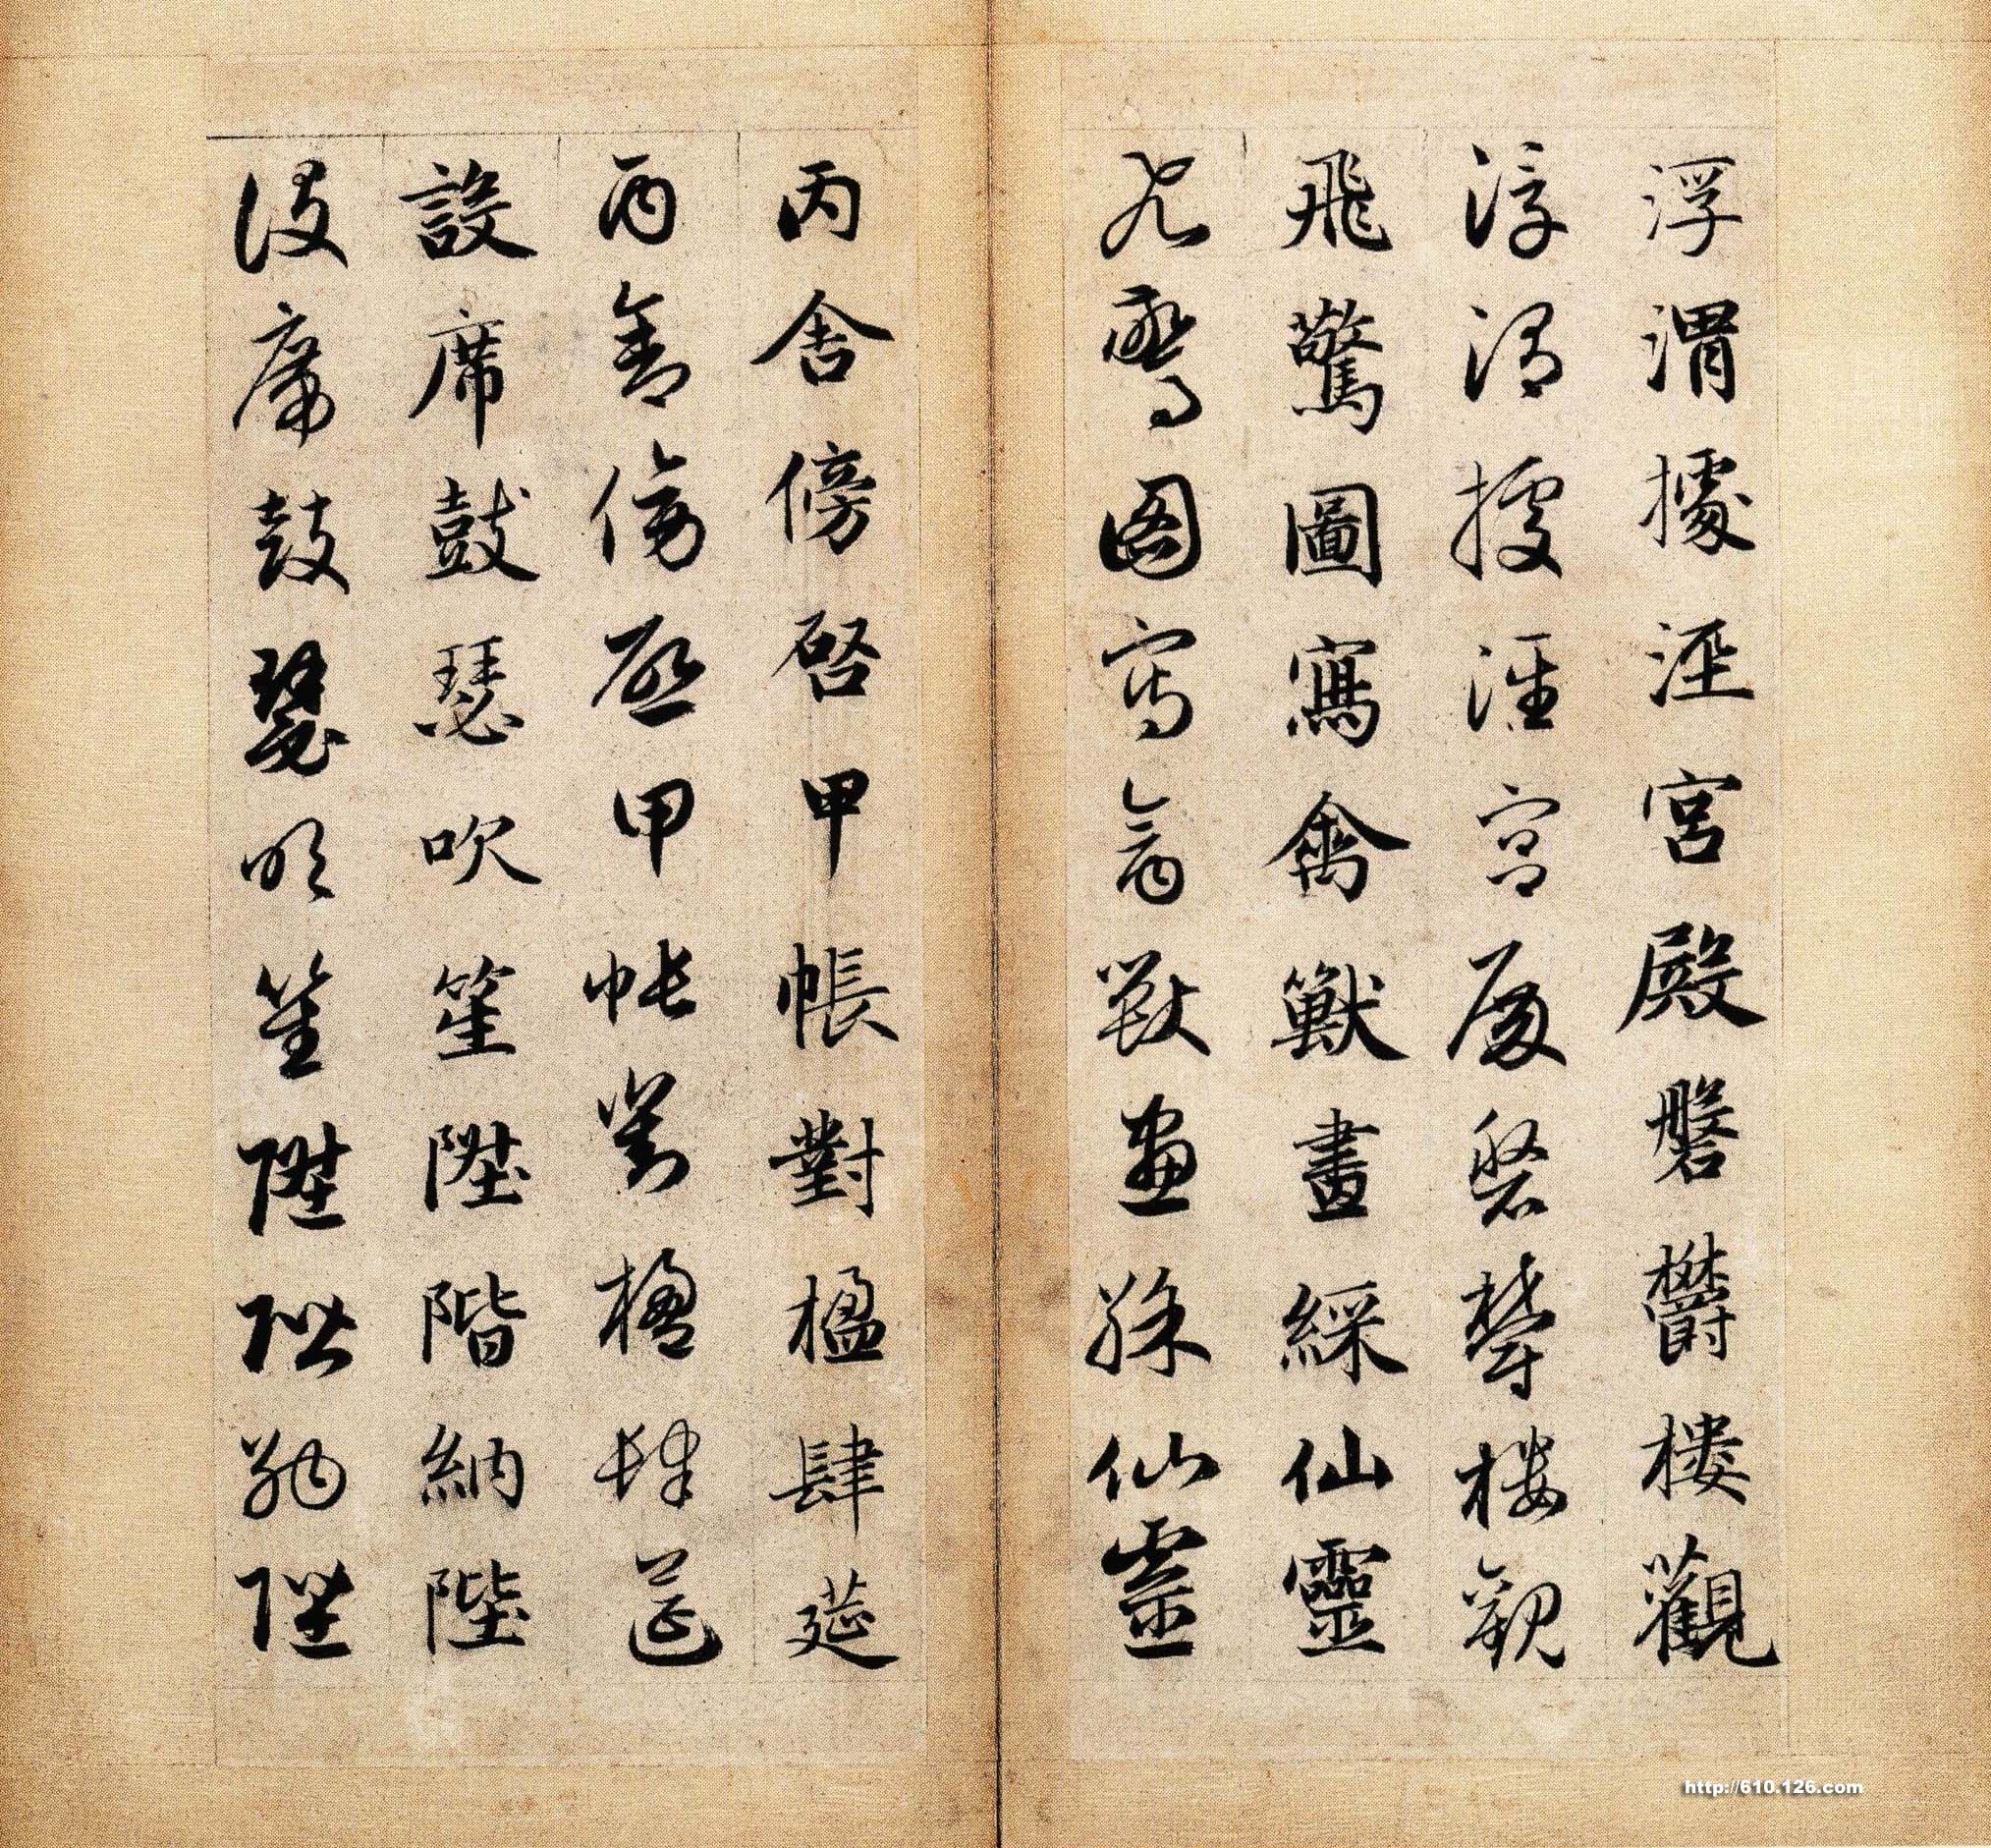 浮渭據涇宮殿磐欝樓觀
浮渭據涇宮殿磐欝樓觀
飛驚圖寫禽獸畫綵仙靈
飛驚圖寫禽獸畫綵仙靈
丙舍傍啓甲帳對楹肆莚
丙舍傍啓甲帳對楹肆莚
設席鼓瑟吹笙陞階納陛
設席鼓瑟吹笙陞階納陛
http://610.126.com